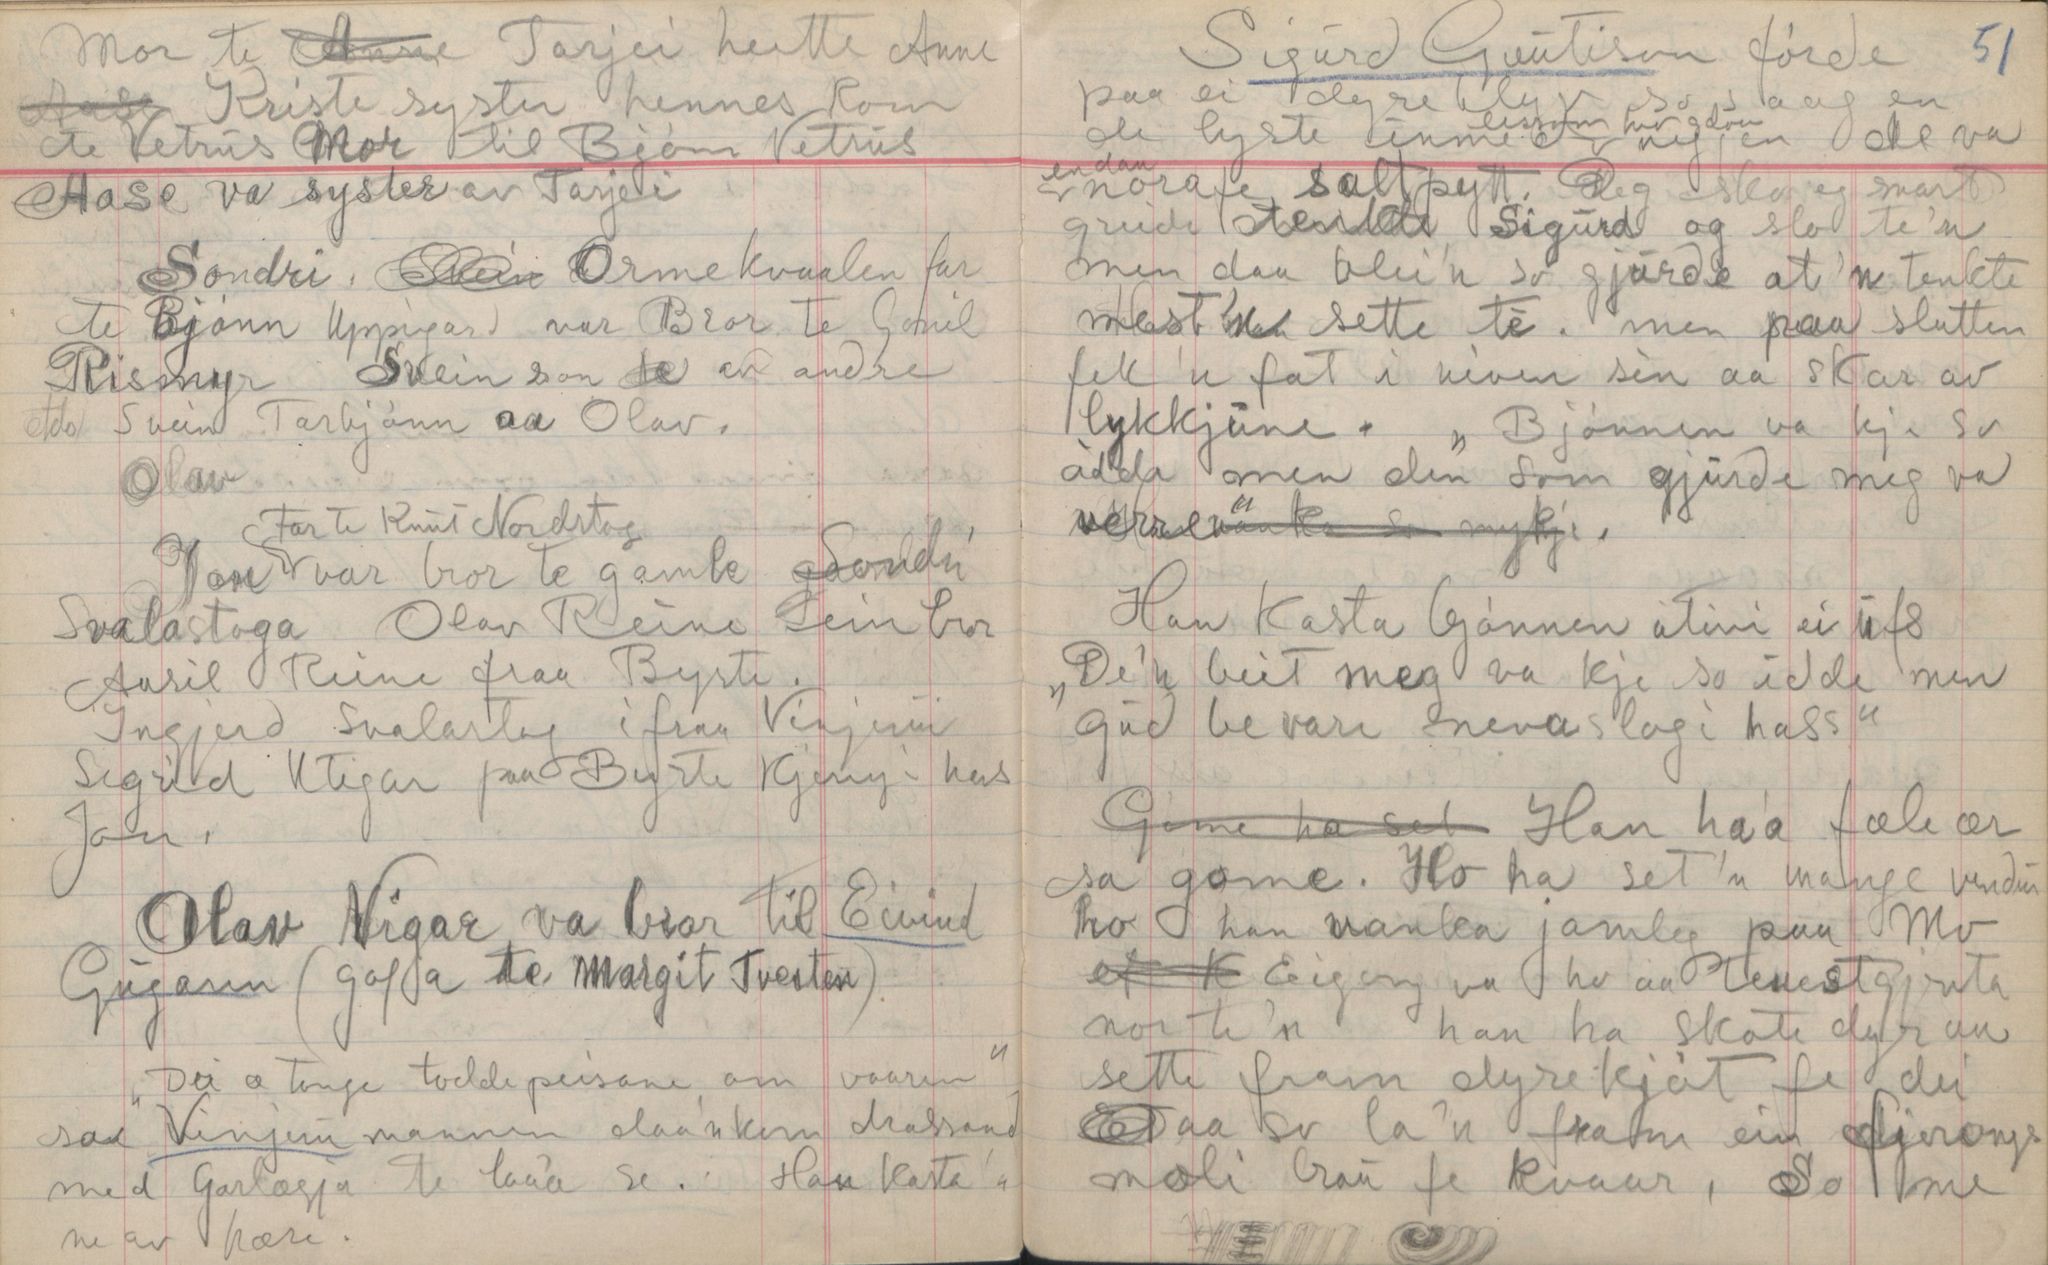 Mor te Anne Tarjei heitte Anne
Aase Kriste syster hennes kom
te Vetrus Mor til Bjónn Vetrus
Aase va syster av Tarjei
Sondri. Svein Ormekvaalen far
te Bjónn Uppigard var Bror te Gonil
Rismyr Svein son te en andre
Svein Tarbjónn aa Olav.
Olav
Far te Knut Nordstog
Jon var bror te gamle Sondri
Svalastoga Olav Reine Sein bror
Aasil Reine fraa Byrte.
Ingjerd Svalastog ifraa Vinjeui
Sigrid Utigar paa Byrte Kjering has
Jon.
Olav Nigar va bror til Eivind
Gugarin (goffa te Margit Tveiten)
"Dei æ tunge toddepeisane om vaaren"
sae Vinjeui mannen daa'n kom drassand
med Garlægja te laua se. Han kasta'n
ne av hære.
51
Sigurd Gautison fórde
paa ei dyreklyv so saag en
de lyste unna lissom hov dan nigjen de va
endau nora fe saltpytt. Deg ska eg snart
greide tenkte Sigurd og slo te'n
men daa blei'n so gjurde at'n tenkte
mest'n sette te. men paa slutten
fek'n fat i niven sin aa skar av
lykkjune. "Bjónnen va kje so
ådda men den" som gjurde meg va
verre" vanka so mykje.
Han kasta bjónnen utivi ei ufs
"De'n beit meg va kje so idde men
gud bevare nevaslagi hass"
Gome ha set Han háa fæle ær
sa gome. Ho ha set'n mange vendur
ho han vanka jamleg paa Mo
et K Eigong va ho aa tenestgjenta
nor te'n han ha skote dyr aa
sette fram dyrekjót fe dei
Taa so la'n fram ein fjerongs
mæli brau fe kvaar, So me